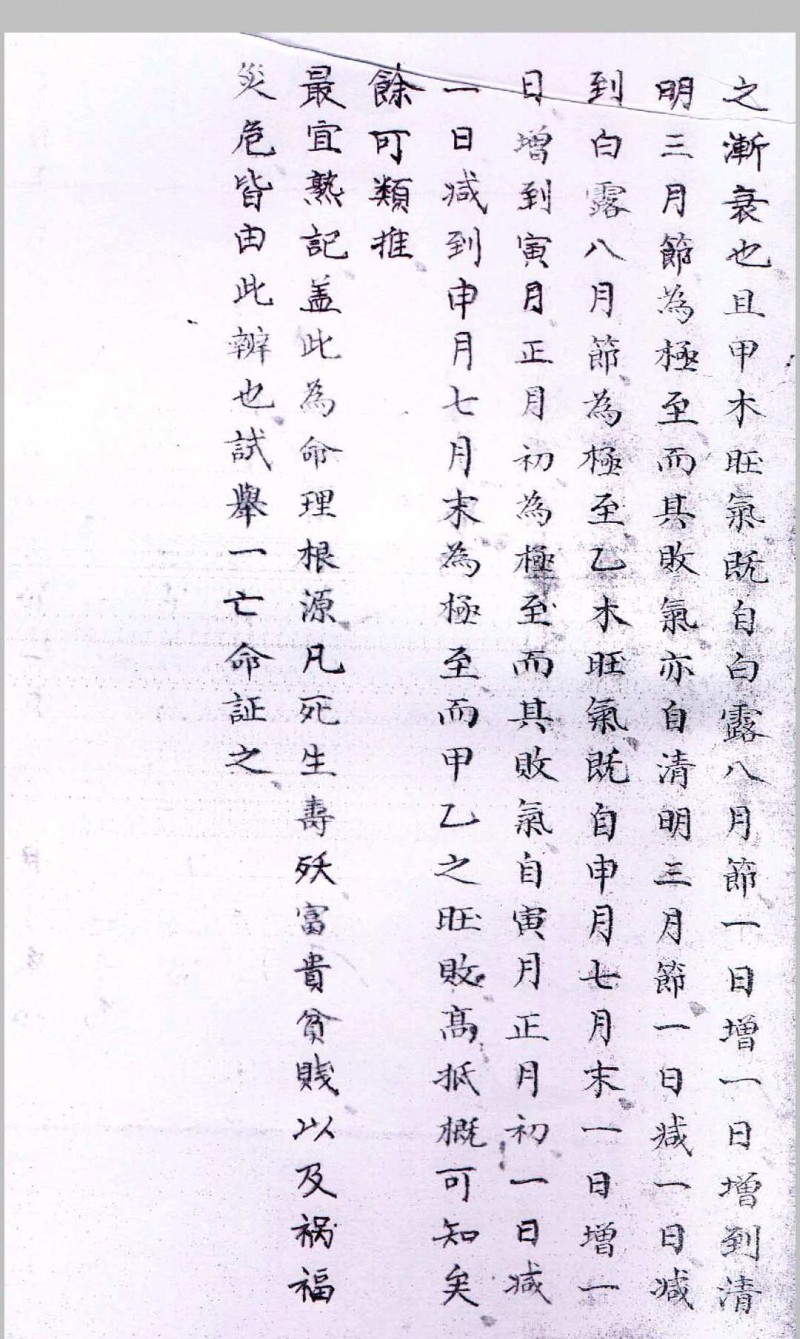 之漸衰也且甲木旺氣既自白露八月節一日增一日增到清
明三月節為極至而其敗氣亦自清明三月節一日减一日减
到白露八月節為極至乙木旺氣既自申月七月末一日增一
日增到寅月正月初為極至而其敗氣自寅月正月初一日减
一日减到申月七月末為極至而甲乙之旺敗髙抵概可知矣
餘可類推
最宜熟記盖此為命理根源凡死生壽殀富貴貧賤以及禍福
災危皆由此辨也試舉一亡命証之